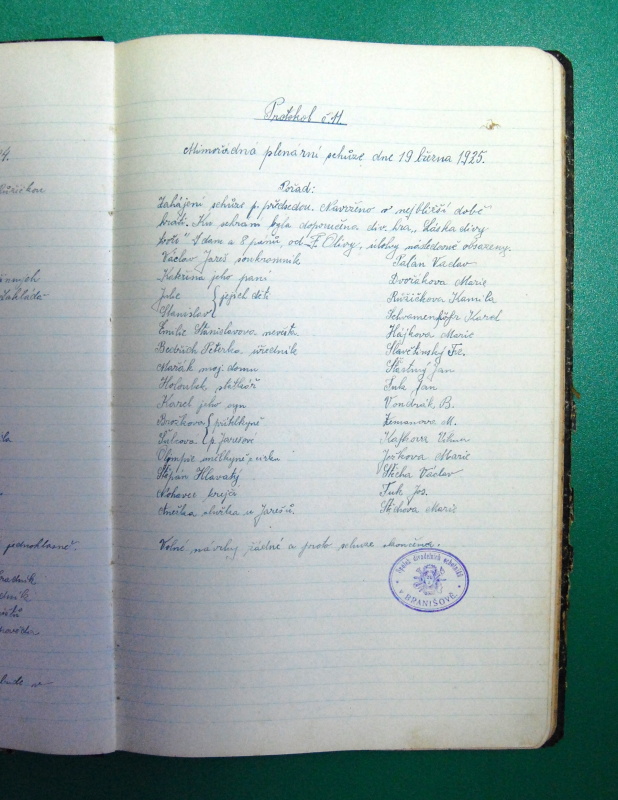 Protokol č. 11.
Mimořádná plenární schůze dne 19 března 1925.
Pořad:
Zahájení schůze p. předsedou. Navrženo v nejbližší době
hráti. Ku sehrání byla doporučena div. hra, „Láska divy
tvoří" 7 dam a 8 pánů, od F. Olivy, úlohy následovně obsazeny.
Václav Jareš soukromník Palán Václav
Kateřina jeho paní Dvořáková Marie
Julie } jejich děti Růžičková Kamila
Stanislav Schramenhöfr Karel
Emilie Stanislavova nevěsta Hájková Marie
Bedřich Peterka úředník Slavětínský Fr.
Mařák maj. domu Šťastný Jan
Holoubek statkář Tuk Jan
Karel jeho syn Vondrák B.
Brožková } přítelkyně Zemanova M.
p. Jarešové
Olympie Marie
Štěpán Hlavatý Stícha Václav
Nohavec krejčí Tuk Jos.
Anežka služka u Jarešů. Stíchova Marie
Volné návrhy žádné a proto schůze skončena.
Spolek divadelních ochotníků
v BRANIŠOVĚ
24.
Růžičkou
jednohlasně.